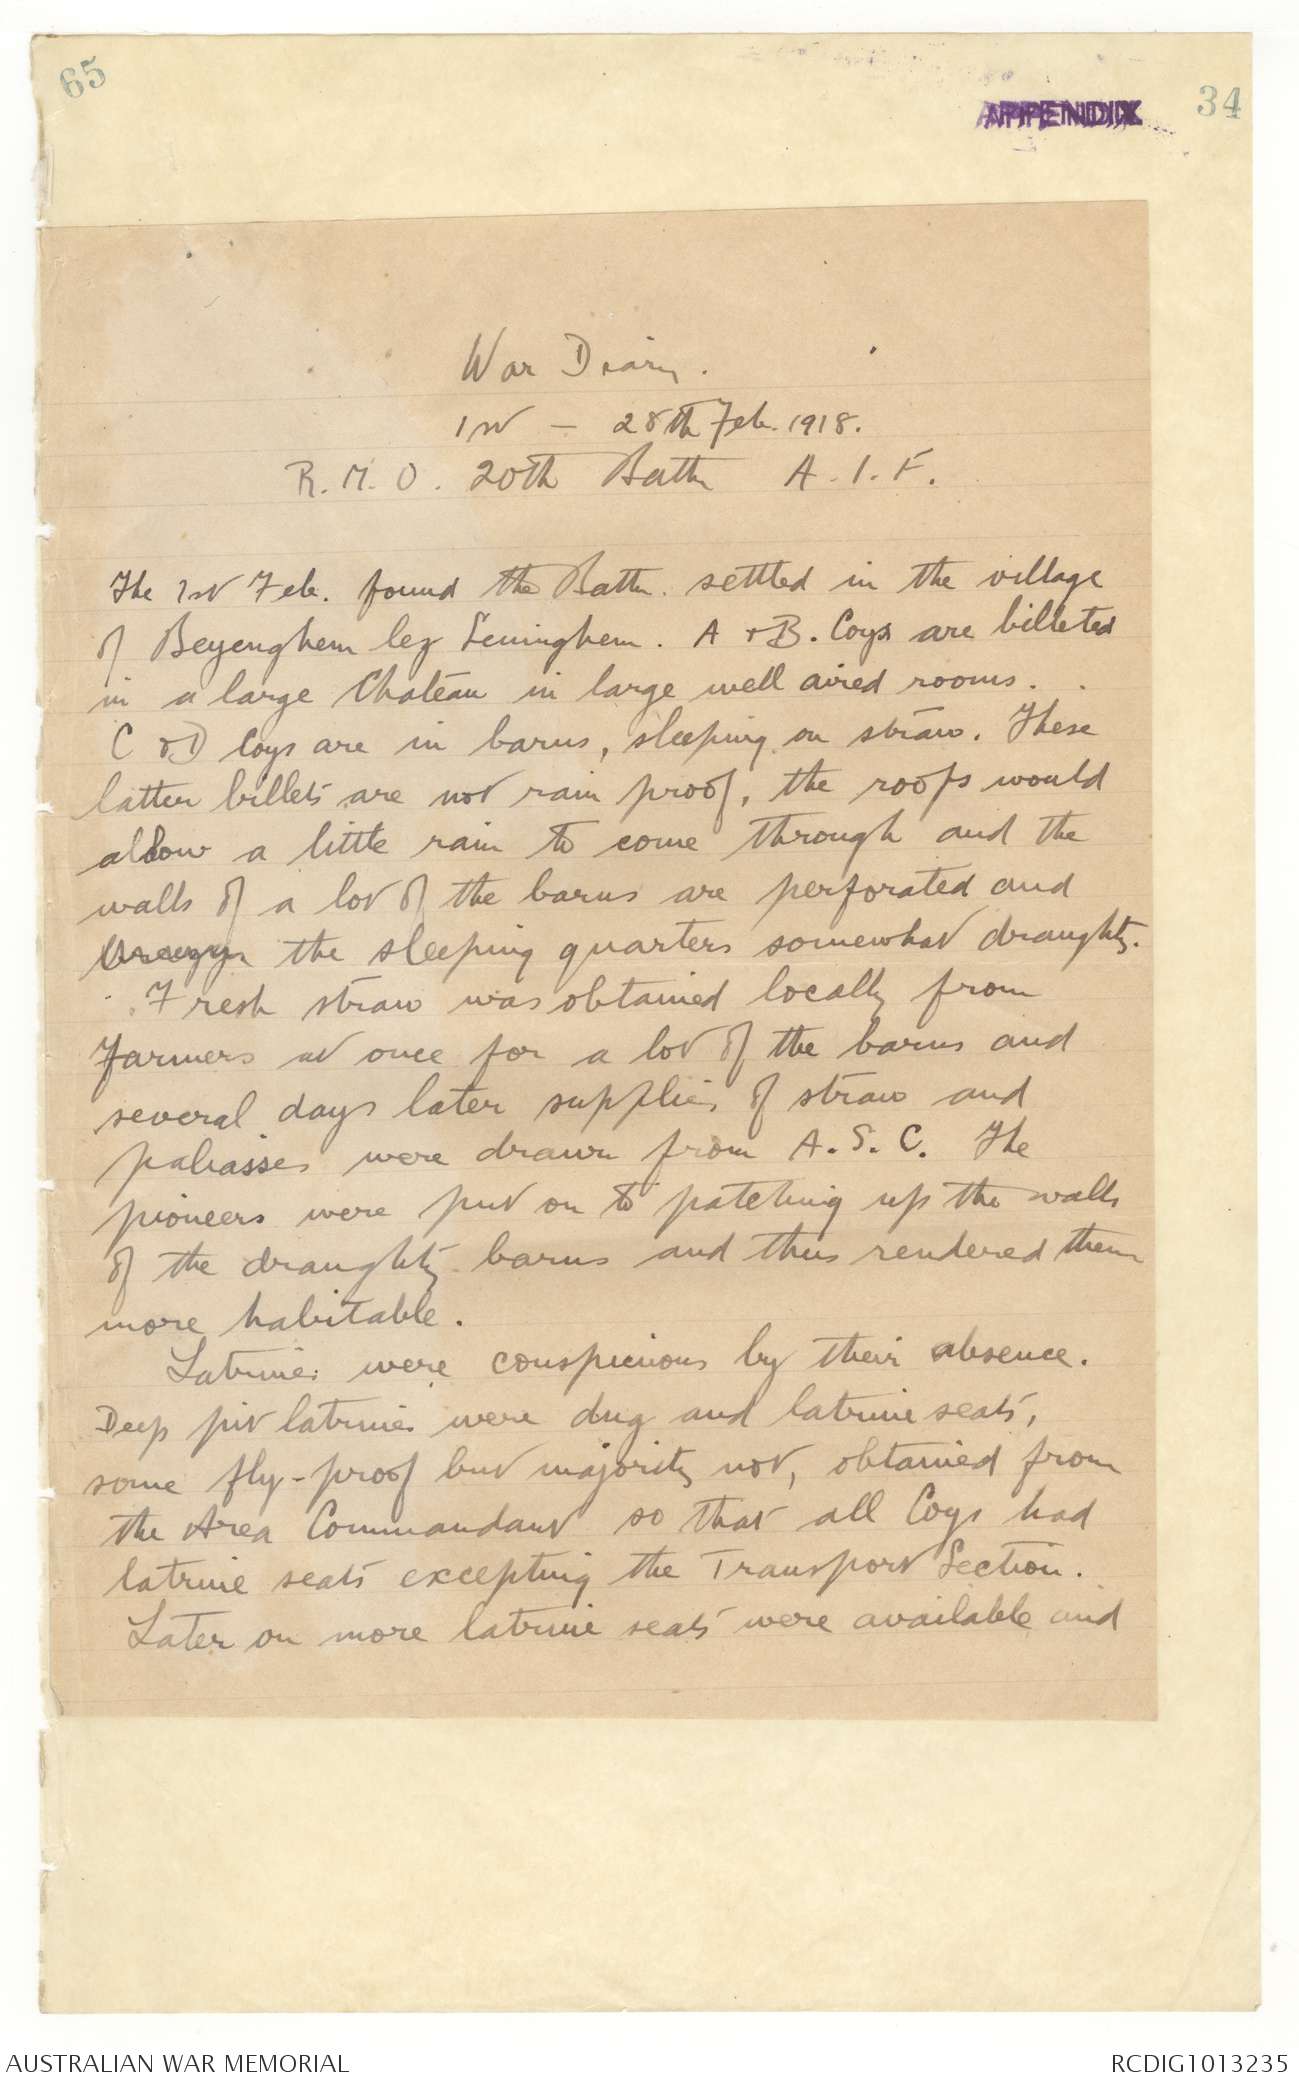 65
APPENDIX
34
War Diary.
1st - 28th Feb. 1918.
R.M.O. 20th Battn A.I.F.
The 1st Feb. found the Battn. settled in the village
of Beyenghem lez Seninghem. A & B. Coys are billeted
in a large Chateau in large well aired rooms.
C & D Coys are in barns, sleeping on straw. These
latter billets are not rain proof, the roofs would
allow a little rain to come through and the
walls of a lot of the barns are perforated and
the sleeping quarters somewhat draughty.
Fresh straw was obtained locally from
farmers at once for a lot of the barns and
several days later supplies of straw and
paliasses were drawn from A.S.C. The
pioneers were put on to patching up the walls
of the draughty barns and thus rendered them
more habitable.
Latrines were conspicuous by their absence.
Deep pit latrines were dug and latrine seats,
some fly-proof but majority not, obtained from
the Area Commandant so that all Coys had
latrine seats excepting the Transport Section.
Later on more latrine seats were available and
AUSTRALIAN WAR MEMORIAL
RCDIG1013235